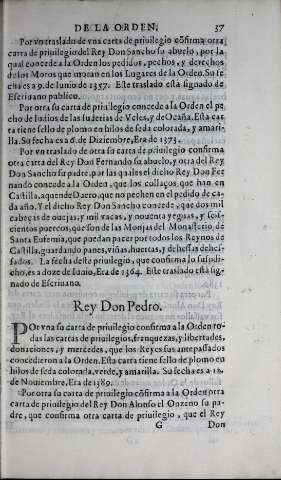 DE LA ORDEN. 37
Por vn traslado de vna carta de priuilegio cõfirma otra
carta de priuilegio del Rey Don Sancho su abuelo, por la
qual concede a la Orden los pedidos, pechos, y derechos
de los Moros que moran en los Lugares de la Orden. Su fe
cha es a 9. de Iunio de 1357. Este traslado està signado de
Escriuano publico.
Por otra su carta de priuilegio concede a la Orden el pe
cho de Iudios de las Iuderias de Vcles, y de Ocaña. Esta car
ta tiene sello de plomo en hilos de seda colorada, y amari-
lla. Su fecha es a 6. de Diziembre, Era de 1373.
Por vn traslado de otra su carta de priuilegio confirma
otra carta del Rey Don Fernando su abuelo, y otra del Rey
Don Sancho su padre, por las quales el dicho Rey Don Fer
nando concede a la Orden, que los collaços que han en
Castilla, aquende Duero, que no pechen en el pedido de ca-
da año. Y el dicho Rey Don Sancho concede, que dos mil
cabeças de ouejas, y mil vacas, y nouenta yeguas, y seis-
cientos puercos, que son de las Monjas del Monasterio de
Santa Eufemia, que puedan pacer por todos los Reynos de
Castilla, guardando panes, viñas, huertas, y dehessas dehes-
sadas. La fecha deste priuilegio, que confirma lo susodi-
cho, es a doze de Iunio, Era de 1364. Este traslado està sig-
nado de Escriuano.
Rey Don Pedro.
POr vna su carta de priuilegio confirma a la Orden to-
das las cartas de priuilegios, franquezas, y libertades,
donaciones, y mercedes, que los Reyes sus antepassados
concedieron a la Orden. Esta carta tiene sello de plomo en
hilos de seda colorada, verde, y amarilla. Su fecha es a 12.
de Nouiembre, Era de 1389.
Por otra su carta de priuilegio cõfirma a la Orden otra
carta de priuilegio del Rey Don Alonso el Onzeno su pa-
dre, que confirma otra carta de priuilegio, que el Rey
G Don